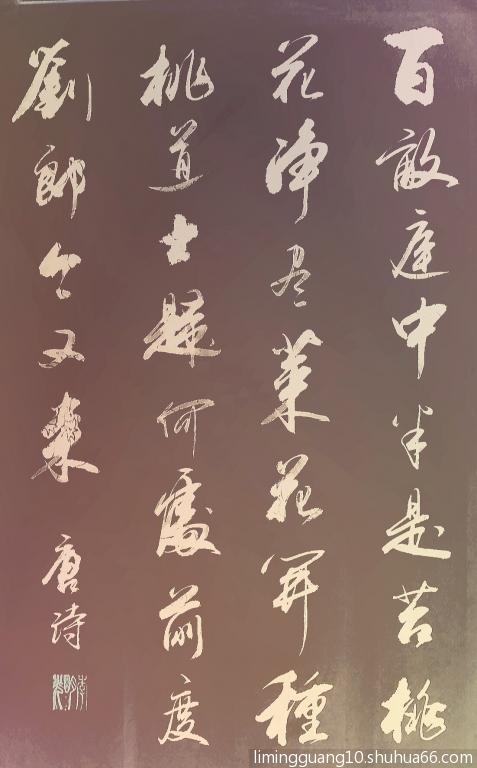 百畝庭中半是苔桃
花淨尽菜花開種
桃道士歸何處前度
劉郎今又來
唐诗
limingguang10.shuhua66.com